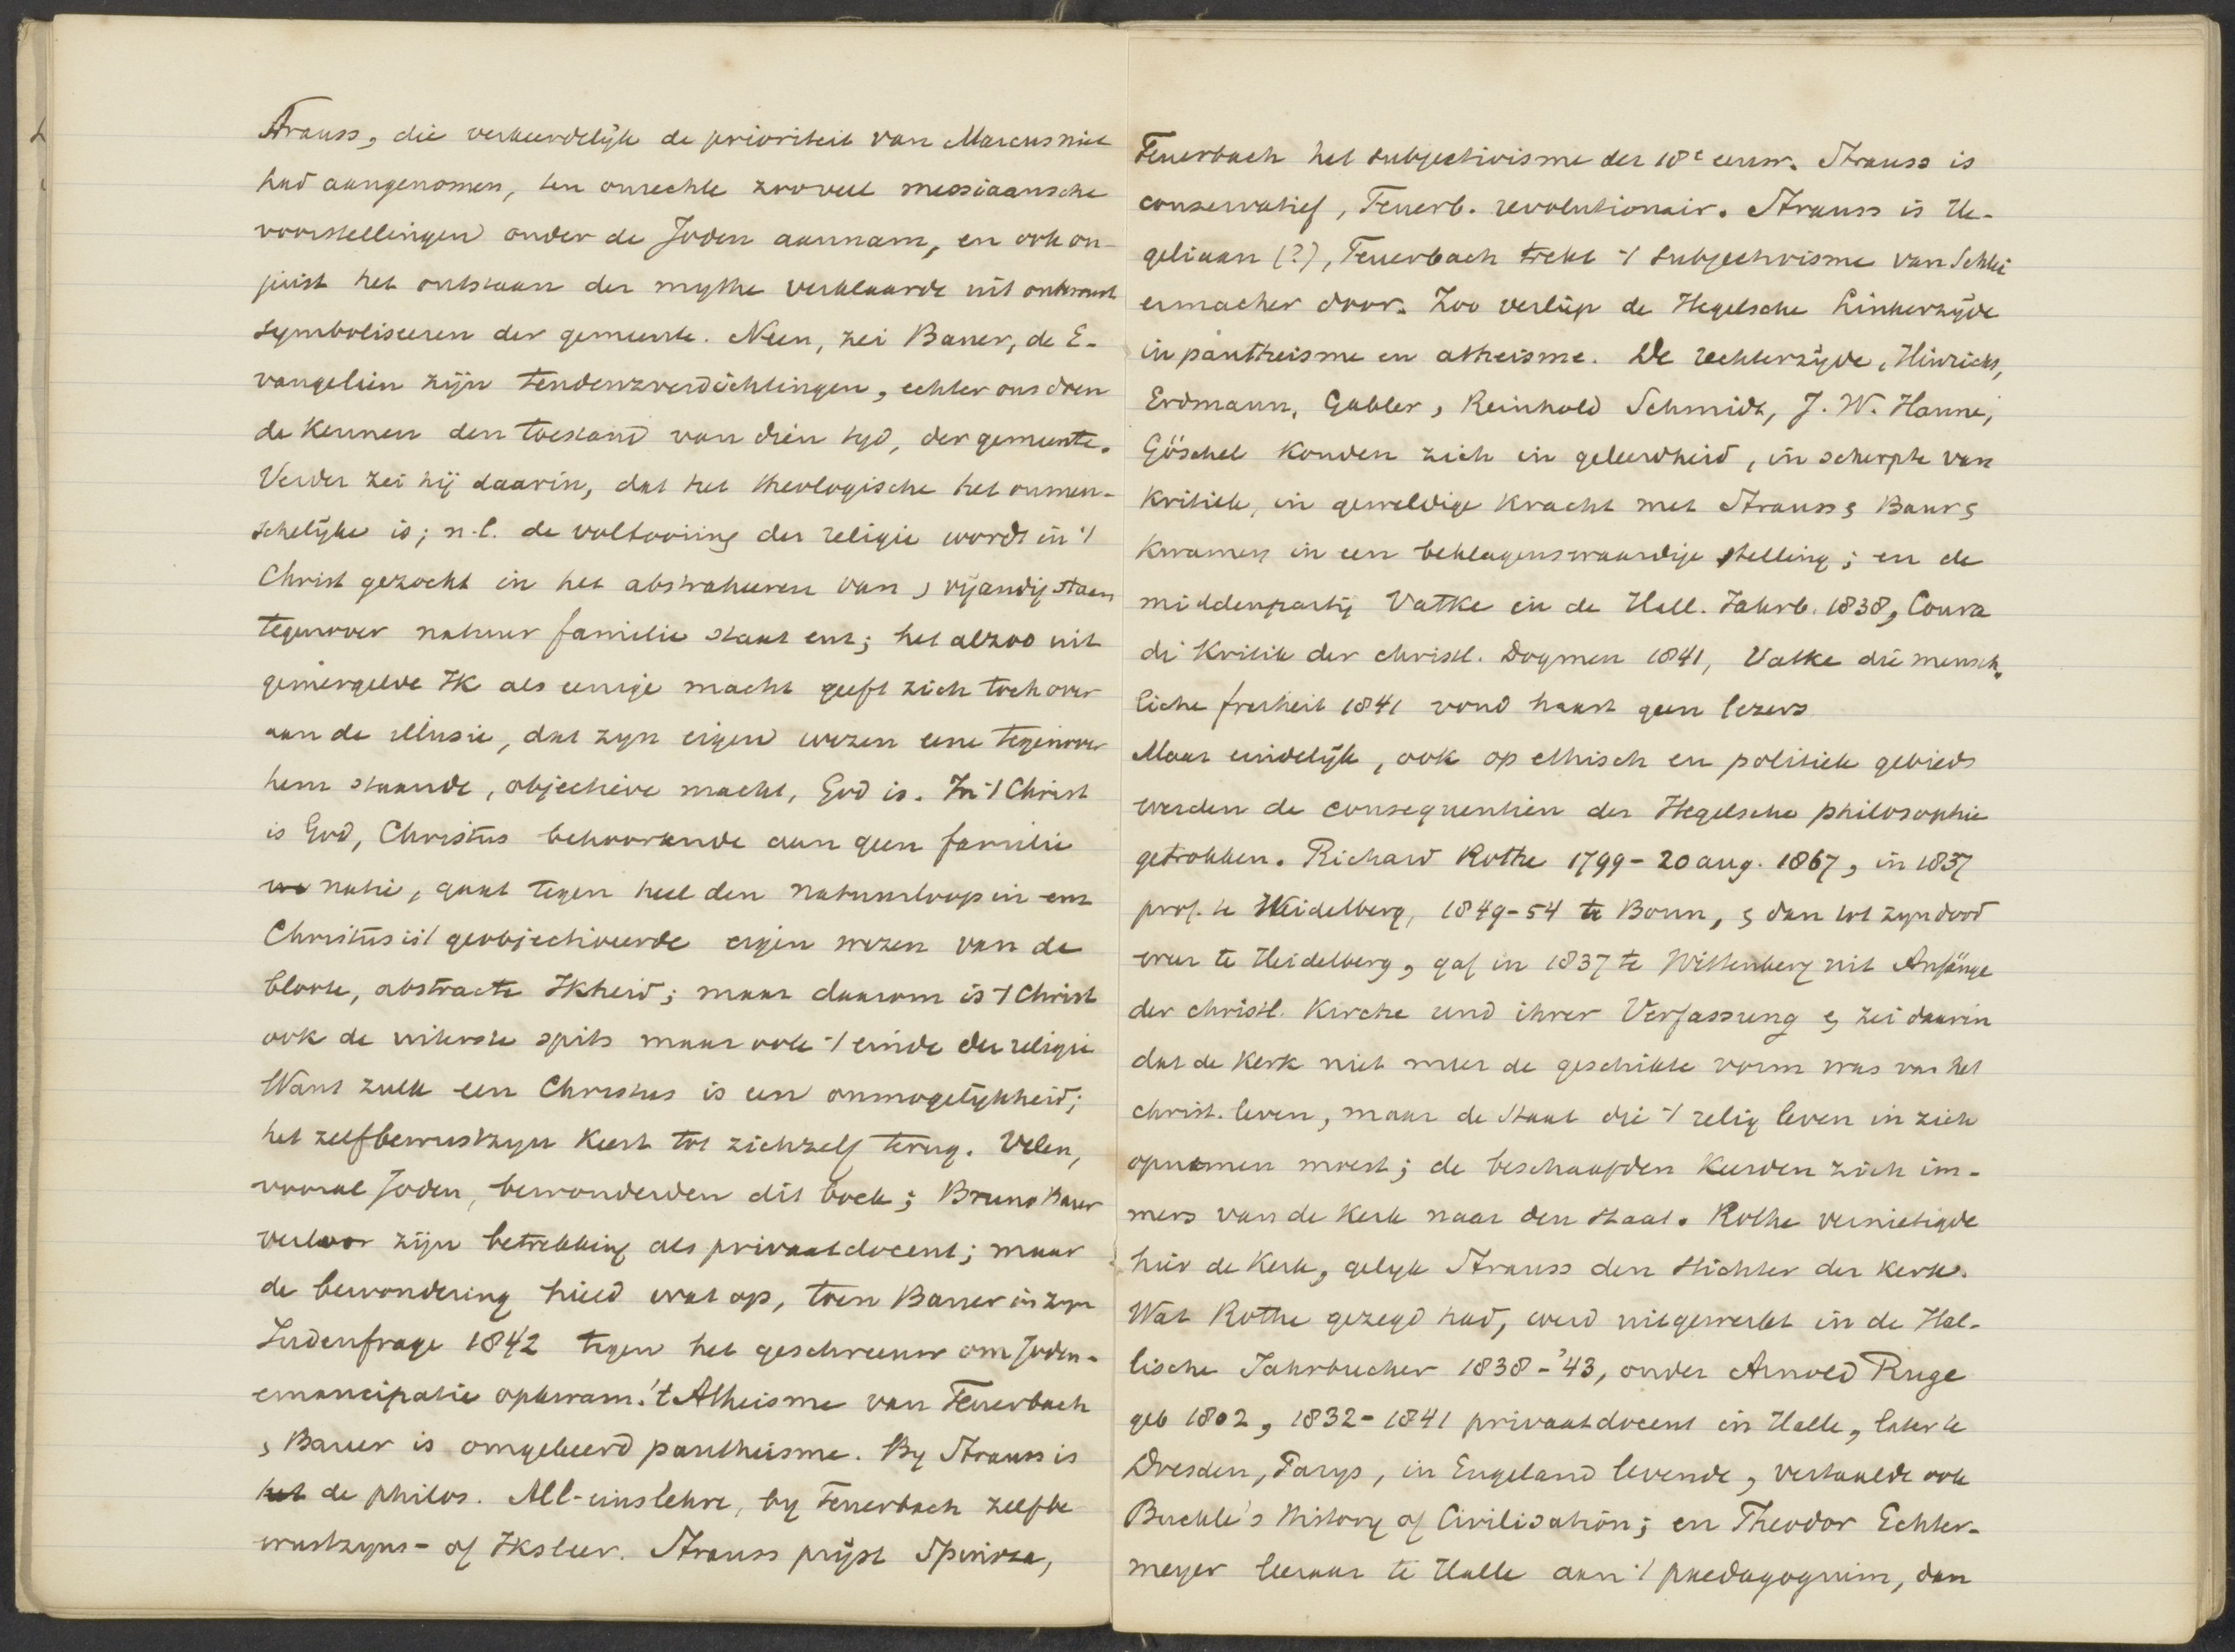 Strauss, die verkeerdelijk de prioriteit van Marcus niet
had aangenomen, ten onrechte zooveel messiaansche
voorstellingen onder de Joden aannam, en ook on-
juist het ontstaan der mythe verklaarde uit onbewust
symboliseeren der gemeente. Neen, zei Bauer, de E-
vangeliën zijn tendenzverdichtingen, echter ons doen
de kennen den toestand van dien tyd, der gemeente.
Verder zei hij daarin, dat het theologische het onmen-
schelijke is; n.l. de voltooiing der religie wordt in 't
Christ gezocht in het abstraheeren van, vijandig staan
tegenover natuur familie staat enz; het alzoo uit
gemergelde Ik als eenige macht geeft zich toch over
aan de illusie, dat zyn eigen wezen eene tegenover
hem staande, objectieve macht, God is. In 't Christ
is God, Christus behoorende aan geen familie
natie, gaat tegen heel den natuurloop in enz
Christus is 't geobjectiveerde eigen wezen van de
bloote, abstracte Ikheid; maar daarom is 't Christ
ook de uiterste spits maar ook 't einde der religie
Want zulk een Christus is een onmogelijkheid;
het zelfbewustzyn keert tot zichzelf terug. Velen,
vooral Joden, bewonderden dit boek; Bruno Bauer
verloor zijn betrekking als privaatdocent; maar
de bewondering hield wat op, toen Bauer in zyn
Judenfrage 1842 tegen het geschreeuw om Joden-
emancipatie opkwam. 't Atheisme van Feuerbach
, Bauer is omgekeerd pantheisme. By Strauss is
het de philos. All-einslehre, by Feuerbach zelfbe
wustzyns- of Iksleer. Strauss prijst Spinoza,
Feuerbach het subjectivisme der 18e eeuw. Strauss is
conservatief, Feuerb. revolutionair. Strauss is He-
geliaan (?), Feuerbach trekt 't subjectivisme van Schlei
ermacher door. Zoo verliep de Hegelsche Linkerzijde
in pantheisme en atheisme. De rechterzijde, Hinrichs,
Erdmann, Gabler, Reinhold Schmidt, J. W. Hanne,
Göschel konden zich in geleerdheid, in scherpte van
kritiek, in geweldige kracht met Strauss, Baur,
kwamen in een beklagenswaardige stelling; en de
middenpartij Vatke in de Hall. Jahrb. 1838, Conra
di Kritik der christl. Dogmen 1841, Vatke die mensch.
liche freiheit 1841 vond haast geen lezers
Maar eindelijk, ook op ethisch en politiek gebied
werden de consequentien der Hegelsche philosophie
getrokken. Richard Rothe 1799-20 aug. 1867, in 1837
prof. te Heidelberg, 1849-54 te Bonn, , dan tot zyn dood
weer te Heidelberg, gaf in 1837 te Wittenberg uit Anfänge
der christl. Kirche und ihrer Verfassung , zei daarin
dat de kerk niet meer de geschikte vorm was van het
christ. leven, maar de Staat die 't relig leven in zich
opnemen moest; de beschaafden keerden zich im-
mers van de kerk naar den staat. Rothe vernietigde
hier de kerk, gelyk Strauss den stichter der kerk.
Wat Rothe gezegd had, werd uitgewerkt in de Hal-
lische Jahrbucher 1838-'43, onder Arnold Ruge
geb 1802, 1832-1841 privaatdocent in Halle, later te
Dresden, Parys, in Engeland levende, vertaalde ook
Buckle's History of Civilisation; en Theodor Echter-
meyer leeraar te Halle aan 't paedagogium, dan